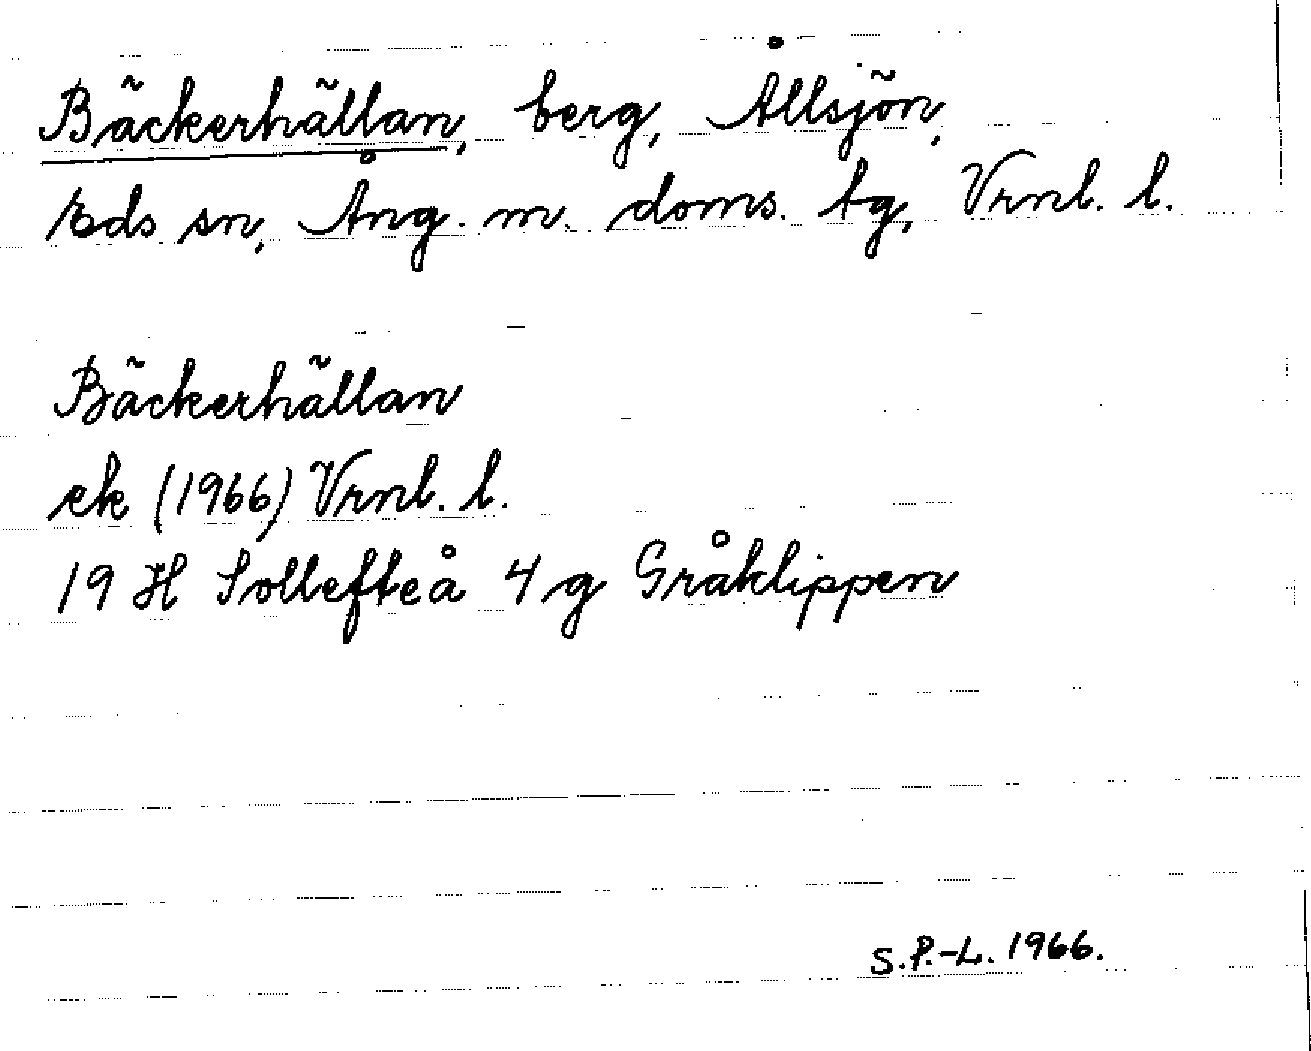 Bäckerhällan, berg, Ållsjön,
Eds sn, Ång. m. doms. tg, Vrnl. l.
Bäckerhällan
ek (1966) Vrnl. l.
19 H Sollefteå 4 g Gråklippen
S.P.-L. 1966.